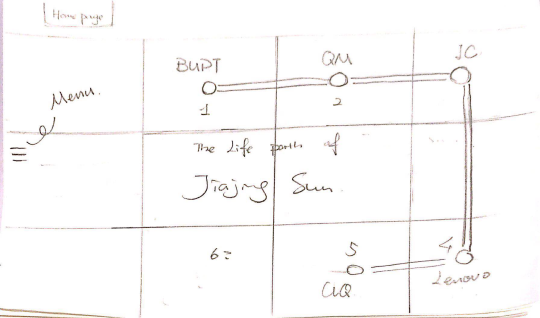 Home page
BUPT
QM
IC
1
2
Menu.
The Life path of
Jiajing Sun.
6:
5
4
Lenovo